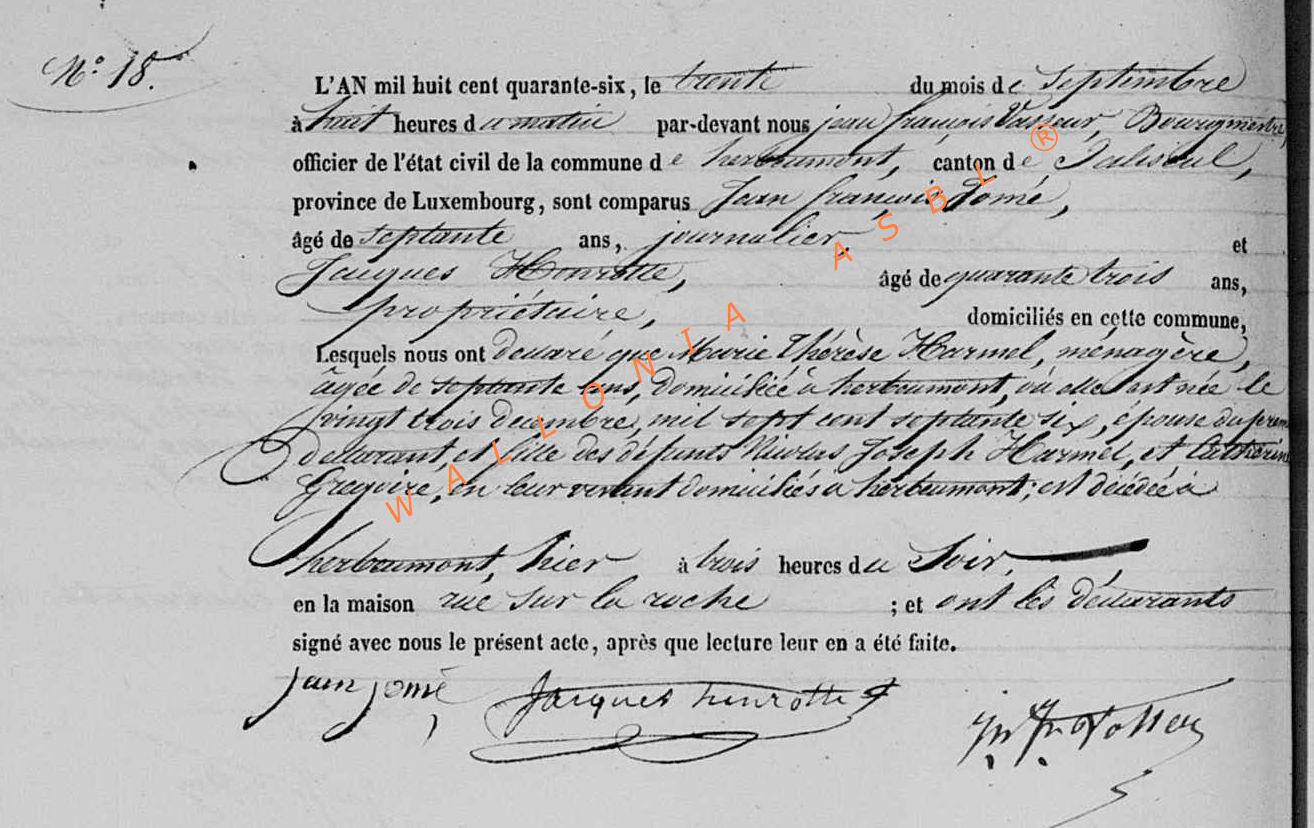 N.° 18.
L'AN mil huit cent quarante-six, le trente du mois de Septembre
à huit heures du matin par-devant nous jean françois Vasseur, Bourgmestre,
officier de l'état civil de la commune de herbeumont, canton de Paliseul,
province de Luxembourg, sont comparus Jean françois Jomé,
âgé de septante ans, journalier et
Jacques Henrotte, âgé de quarante trois ans,
propriétaire, domiciliés en cette commune,
Lesquels nous ont déclaré que Marie Thérèse Harmel, ménagère,
âgée de septante ans, domiciliée à herbeumont, où elle est née le
vingt trois décembre, mil sept cent septante six, épouse du premier
déclarant, et fille des défunts Nicolas Joseph Harmel, et Catherine
Gregoire, en leur vivant domiciliés à herbeumont; est décédée à
herbeumont, hier à trois heures du Soir,
en la maison rue sur la roche ; et ont les déclarants
signé avec nous le présent acte, après que lecture leur en a été faite.
jean jomé
Jacques henrotte
WALLONIA ASBL ®